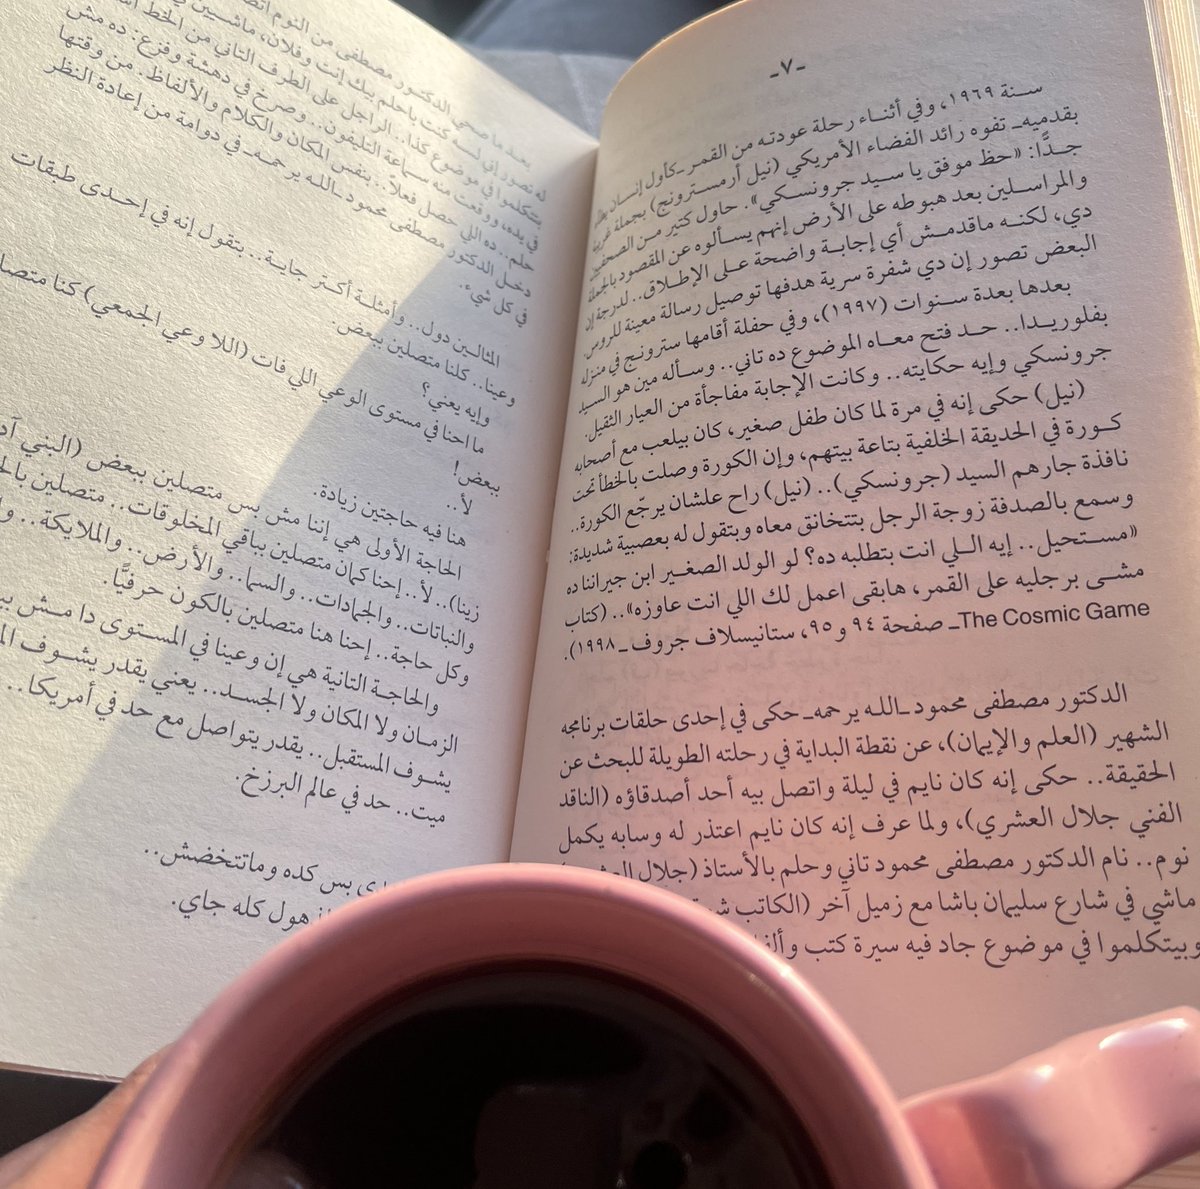 -٧-
سنة ١٩٦٩، وفي أثناء رحلة عودته من القمر ـكأول إنسان
بقدميهـ تفوه رائد الفضاء الأمريكي (نيل أرمسترونج) بجملة غريبة
جدًّا: «حظ موفق يا سيد جرونسكي». حاول كتير من الصحفيين
والمراسلين بعد هبوطه على الأرض إنهم يسألوه عن المقصود بالجملة
دي، لكنه ماقدمش أي إجابة واضحة على الإطلاق.. لدرجة إن
البعض تصور إن دي شفرة سرية هدفها توصيل رسالة معينة للروس.
بعدها بعدة سنوات (١٩٩٧)، وفي حفلة أقامها سترونج في منزله
بفلوريدا.. حد فتح معاه الموضوع ده تاني.. وسأله مين هو السيد
جرونسكي وإيه حكايته.. وكانت الإجابة مفاجأة من العيار الثقيل.
(نيل) حكى إنه في مرة لما كان طفل صغير، كان بيلعب مع أصحابه
كورة في الحديقة الخلفية بتاعة بيتهم، وإن الكورة وصلت بالخطأ تحت
نافذة جارهم السيد (جرونسكي).. (نيل) راح علشان يرجّع الكورة..
وسمع بالصدفة زوجة الرجل بتتخانق معاه وبتقول له بعصبية شديدة:
«مستحيل.. إيه اللي انت بتطلبه ده؟ لو الولد الصغير ابن جيراننا ده
مشى برجليه على القمر، هابقى اعمل لك اللي انت عاوزه».. (كتاب
The Cosmic Gameـ صفحة ٩٤ و٩٥، ستانيسلاف جروف ـ ١٩٩٨).
الدكتور مصطفى محمود ـالله يرحمهـ حكى في إحدى حلقات برنامجه
الشهير (العلم والإيمان)، عن نقطة البداية في رحلته الطويلة للبحث عن
الحقيقة.. حكى إنه كان نايم في ليلة واتصل بيه أحد أصدقاؤه (الناقد
الفني جلال العشري)، ولما عرف إنه كان نايم اعتذر له وسابه يكمل
نوم.. نام الدكتور مصطفى محمود تاني وحلم بالأستاذ (جلال
ماشي في شارع سليمان باشا مع زميل آخر (الكاتب
وبيتكلموا في موضوع جاد فيه سيرة كتب
بعد ما صحي الدكتور مصطفى من النوم
له تصور إني لسه كنت باحلم بيك إنت وفلان، ماشيين في
بتتكلموا في موضوع كذا.. الراجل على الطرف التاني من الخط
في يده، ووقعت منه سماعة التليفون.. وصرخ في دهشة وفزع: ده مش
حلم.. ده اللي حصل فعلاً.. بنفس المكان والكلام والألفاظ. من وقتها
دخل الدكتور مصطفى محمود ـالله يرحمهـ في دوامة من إعادة النظر
في كل شيء.
المثالين دول.. وأمثلة أكتر جاية.. بتقول إنه في إحدى طبقات
وعينا.. كلنا متصلين ببعض.
وإيه يعني؟
ما احنا في مستوى الوعي اللي فات (اللا وعي الجمعي) كنا
ببعض!
لأ..
هنا فيه حاجتين زيادة.
الحاجة الأولى هي إننا مش بس متصلين ببعض (البني
زينا).. لأ.. إحنا كمان متصلين بباقي المخلوقات.. متصلين
والنباتات.. والجمادات.. والسما.. والأرض.. والملايكة..
وكل حاجة.. إحنا هنا متصلين بالكون حرفيًّا.
والحاجة التانية هي إن وعينا في المستوى دا مش
الزمان ولا المكان ولا الجسد.. يعني يقدر يشوف
يشوف المستقبل.. يقدر يتواصل مع حد في أمريكا..
ميت.. حد في عالم البرزخ.
بس كده وماتتخضش..
هول كله جاي.